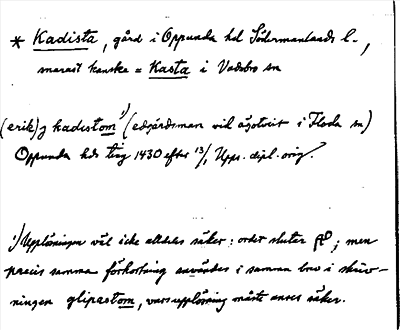 * Kadista, gård i Oppunda hd Södermanlands l.,
snarast kanske = Kasta i Vadsbro sn
(erik) j kadistom ¹) (edgärdsman vid ägotvist i Floda sn)
Oppunda hds ting 1430 efter 13/1 Upps. dipl. orig.
¹) Upplösningen väl icke alldeles säker: ordet slutar ; men
precis samma förkortning användes i samma brev i skriv-
ningen glipastom, vars upplösning måste anses säker.